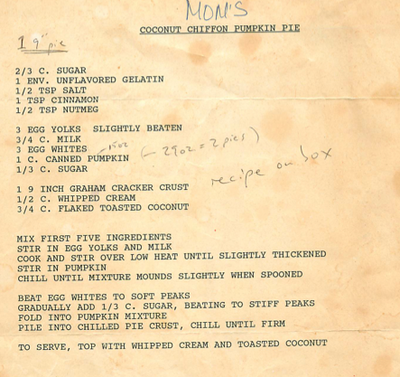 MOM'S
COCONUT CHIFFON PUMPKIN PIE
1 9" pie
2/3 C. SUGAR
1 ENV. UNFLAVORED GELATIN
1/2 TSP SALT
1 TSP CINNAMON
1/2 TSP NUTMEG
3 EGG YOLKS SLIGHTLY BEATEN
3/4 C. MILK
3 EGG WHITES
1 C. CANNED PUMPKIN (- 29oz = 2 pies)
1/3 C. SUGAR
recipe on box
1 9 INCH GRAHAM CRACKER CRUST
1/2 C. WHIPPED CREAM
3/4 C. FLAKED TOASTED COCONUT
MIX FIRST FIVE INGREDIENTS
STIR IN EGG YOLKS AND MILK
COOK AND STIR OVER LOW HEAT UNTIL SLIGHTLY THICKENED
STIR IN PUMPKIN
CHILL UNTIL MIXTURE MOUNDS SLIGHTLY WHEN SPOONED
BEAT EGG WHITES TO SOFT PEAKS
GRADUALLY ADD 1/3 C. SUGAR, BEATING TO STIFF PEAKS
FOLD INTO PUMPKIN MIXTURE
PILE INTO CHILLED PIE CRUST, CHILL UNTIL FIRM
TO SERVE, TOP WITH WHIPPED CREAM AND TOASTED COCONUT